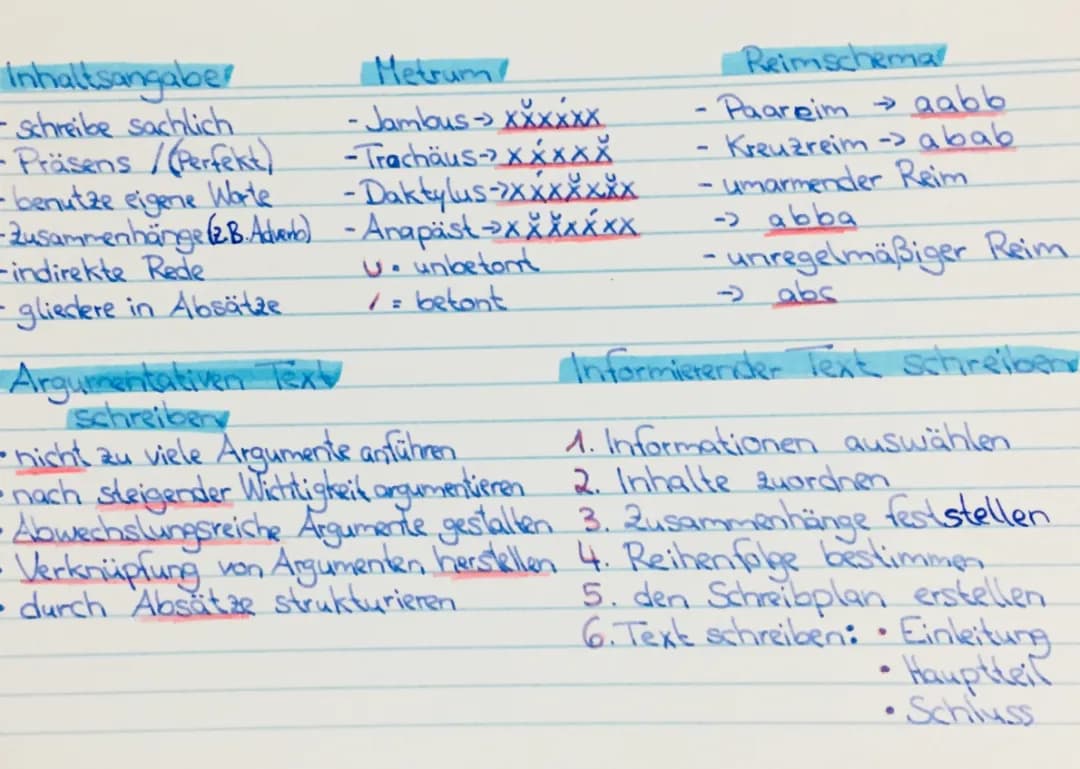 Inhaltsangabe
- schreibe sachlich
- Präsens / (Perfekt)
- benutze eigene Worte
- Zusammenhänge (z.B. Adverb)
- indirekte Rede
- gliedere in Absätze
Metrum
- Jambus -> xx̆xx́xx
- Trochäus -> xx́xxx̆
- Daktylus -> xx́xx̆xx̆x
- Anapäst -> xx̆x̆xx́xx
U = unbetont
/ = betont
Reimschema
- Paareim -> aabb
- Kreuzreim -> abab
- umarmender Reim
-> abba
- unregelmäßiger Reim
-> abc
Argumentativen Text
schreiben
• nicht zu viele Argumente anführen
• nach steigender Wichtigkeit argumentieren
• Abwechslungsreiche Argumente gestalten
• Verknüpfung von Argumenten herstellen
• durch Absätze strukturieren
Informierender Text schreiben
1. Informationen auswählen
2. Inhalte zuordnen
3. Zusammenhänge feststellen
4. Reihenfolge bestimmen
5. den Schreibplan erstellen
6. Text schreiben: • Einleitung
• Hauptteil
• Schluss